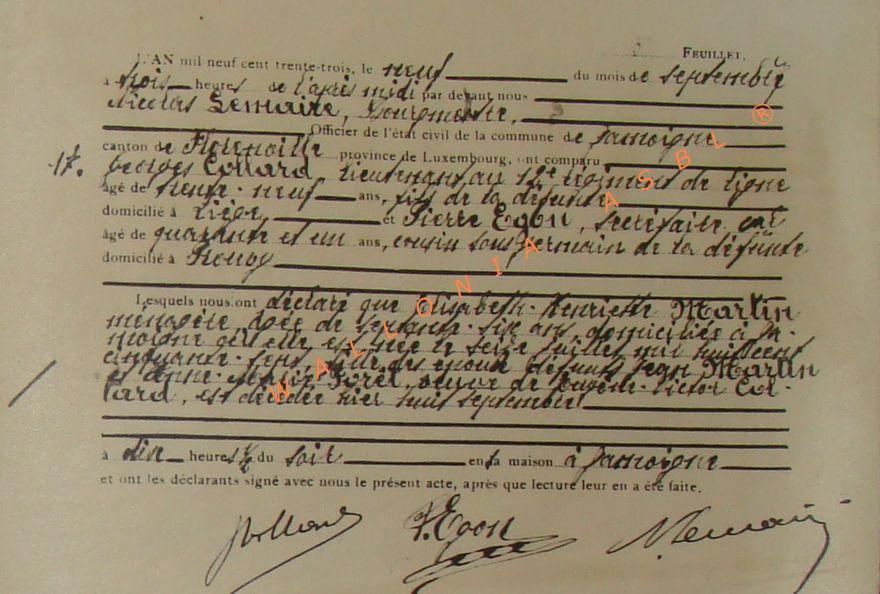 FEUILLET.
L'AN mil neuf cent trente-trois, le neuf du mois de septembre
à trois heures de l'après midi par devant nous
Nicolas Lemaire, Bourgmestre,
Officier de l'état civil de la commune de Jamoigne
canton de Florenville province de Luxembourg, ont comparu
17. Georges Collard, lieutenant au 12e régiment de ligne
âgé de trente-neuf ans, fils de la défunte
domicilié à Liège, et Pierre Egon, secrétaire
âgé de quarante et un ans, cousin sous germain de la défunte
domicilié à
Lesquels nous ont déclaré que Elisabeth-Henriette Martin
ménagère, âgée de septante-six ans, domiciliée à Ja-
moigne qu'elle est née le seize juillet mil huit cent
cinquante-sept, fille des époux défunts Jean Martin
et Anne-Marie Forêt, veuve de Victor Col-
lard, est décédée hier huit septembre
à dix heures ½ du soir en sa maison à Jamoigne
et ont les déclarants signé avec nous le présent acte, après que lecture leur en a été faite.
P. Egon N Lemaire
WALLONIA ASBL ®